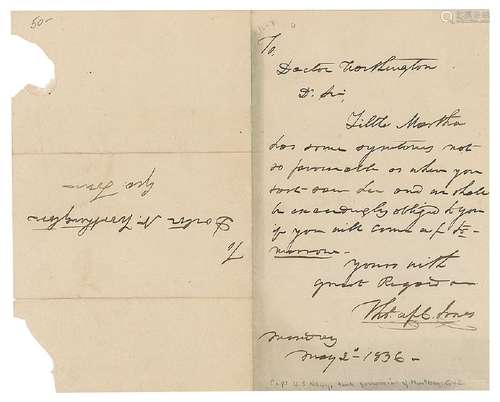 50-
To
Doctor Worthington
D. Sir,
Little Martha
has some symptoms not
so favorable as when you
last saw her and we shall
be exceedingly obliged to you
if you will come up to
morrow
Yours with
great Regard
Thos. ap C. Jones
Monday
May 2d 1836-
To
Doctor N. Worthington
Geo. Town
Capt U.S. Navy